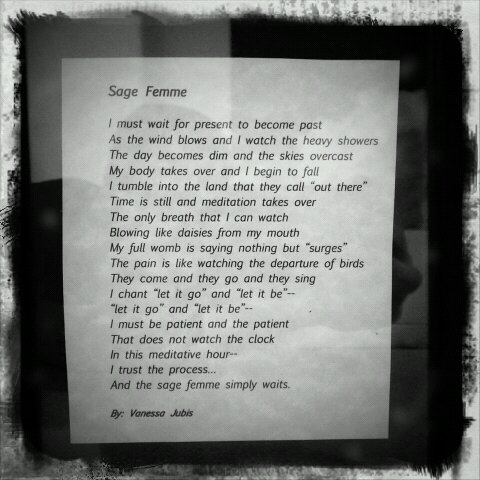 Sage Femme
I must wait for present to become past
As the wind blows and I watch the heavy showers
The day becomes dim and the skies overcast
My body takes over and I begin to fall
I tumble into the land that they call “out there”
Time is still and meditation takes over
The only breath that I can watch
Blowing like daisies from my mouth
My full womb is saying nothing but “surges”
The pain is like watching the departure of birds
They come and they go and they sing
I chant “let it go” and “let it be”--
“let it go” and “let it be”--
I must be patient and the patient
That does not watch the clock
In this meditative hour--
I trust the process...
And the sage femme simply waits.
By: Vanessa Jubis